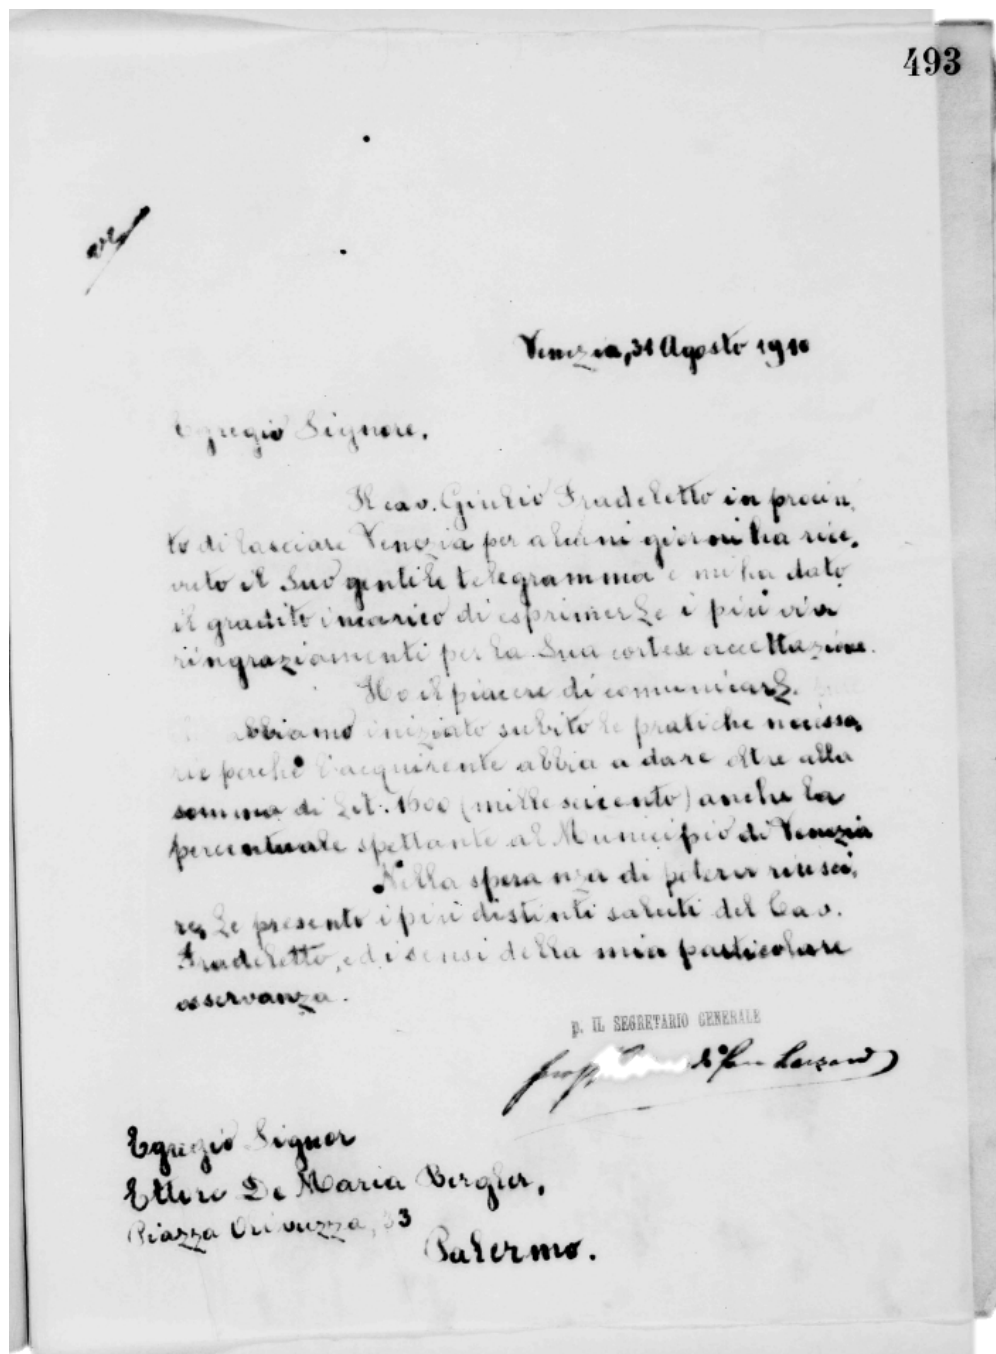 493
Venezia, 31 Agosto 1910
Egregio Signore,
Il cav. Giulio Fradeletto in procin-
to di lasciare Venezia per alcuni giorni ha rice-
vuto il Suo gentile telegramma e mi ha dato
il gradito incarico di esprimerLe i più vivi
ringraziamenti per la Sua cortese accettazione.
Ho il piacere di comunicarLe
abbiamo iniziato subito le pratiche necessa-
rie perché l'acquirente abbia a dare oltre alla
somma di Lit. 1600 (mille seicento) anche la
percentuale spettante al Municipio di Venezia
Nella speranza di poterci riusci-
re, Le presento i più distinti saluti del Cav.
Fradeletto, ed i sensi della mia particolare
osservanza.
p. IL SEGRETARIO GENERALE
Egregio Signor
Ettore De Maria Bergler,
Piazza Olivuzza, 33
Palermo.